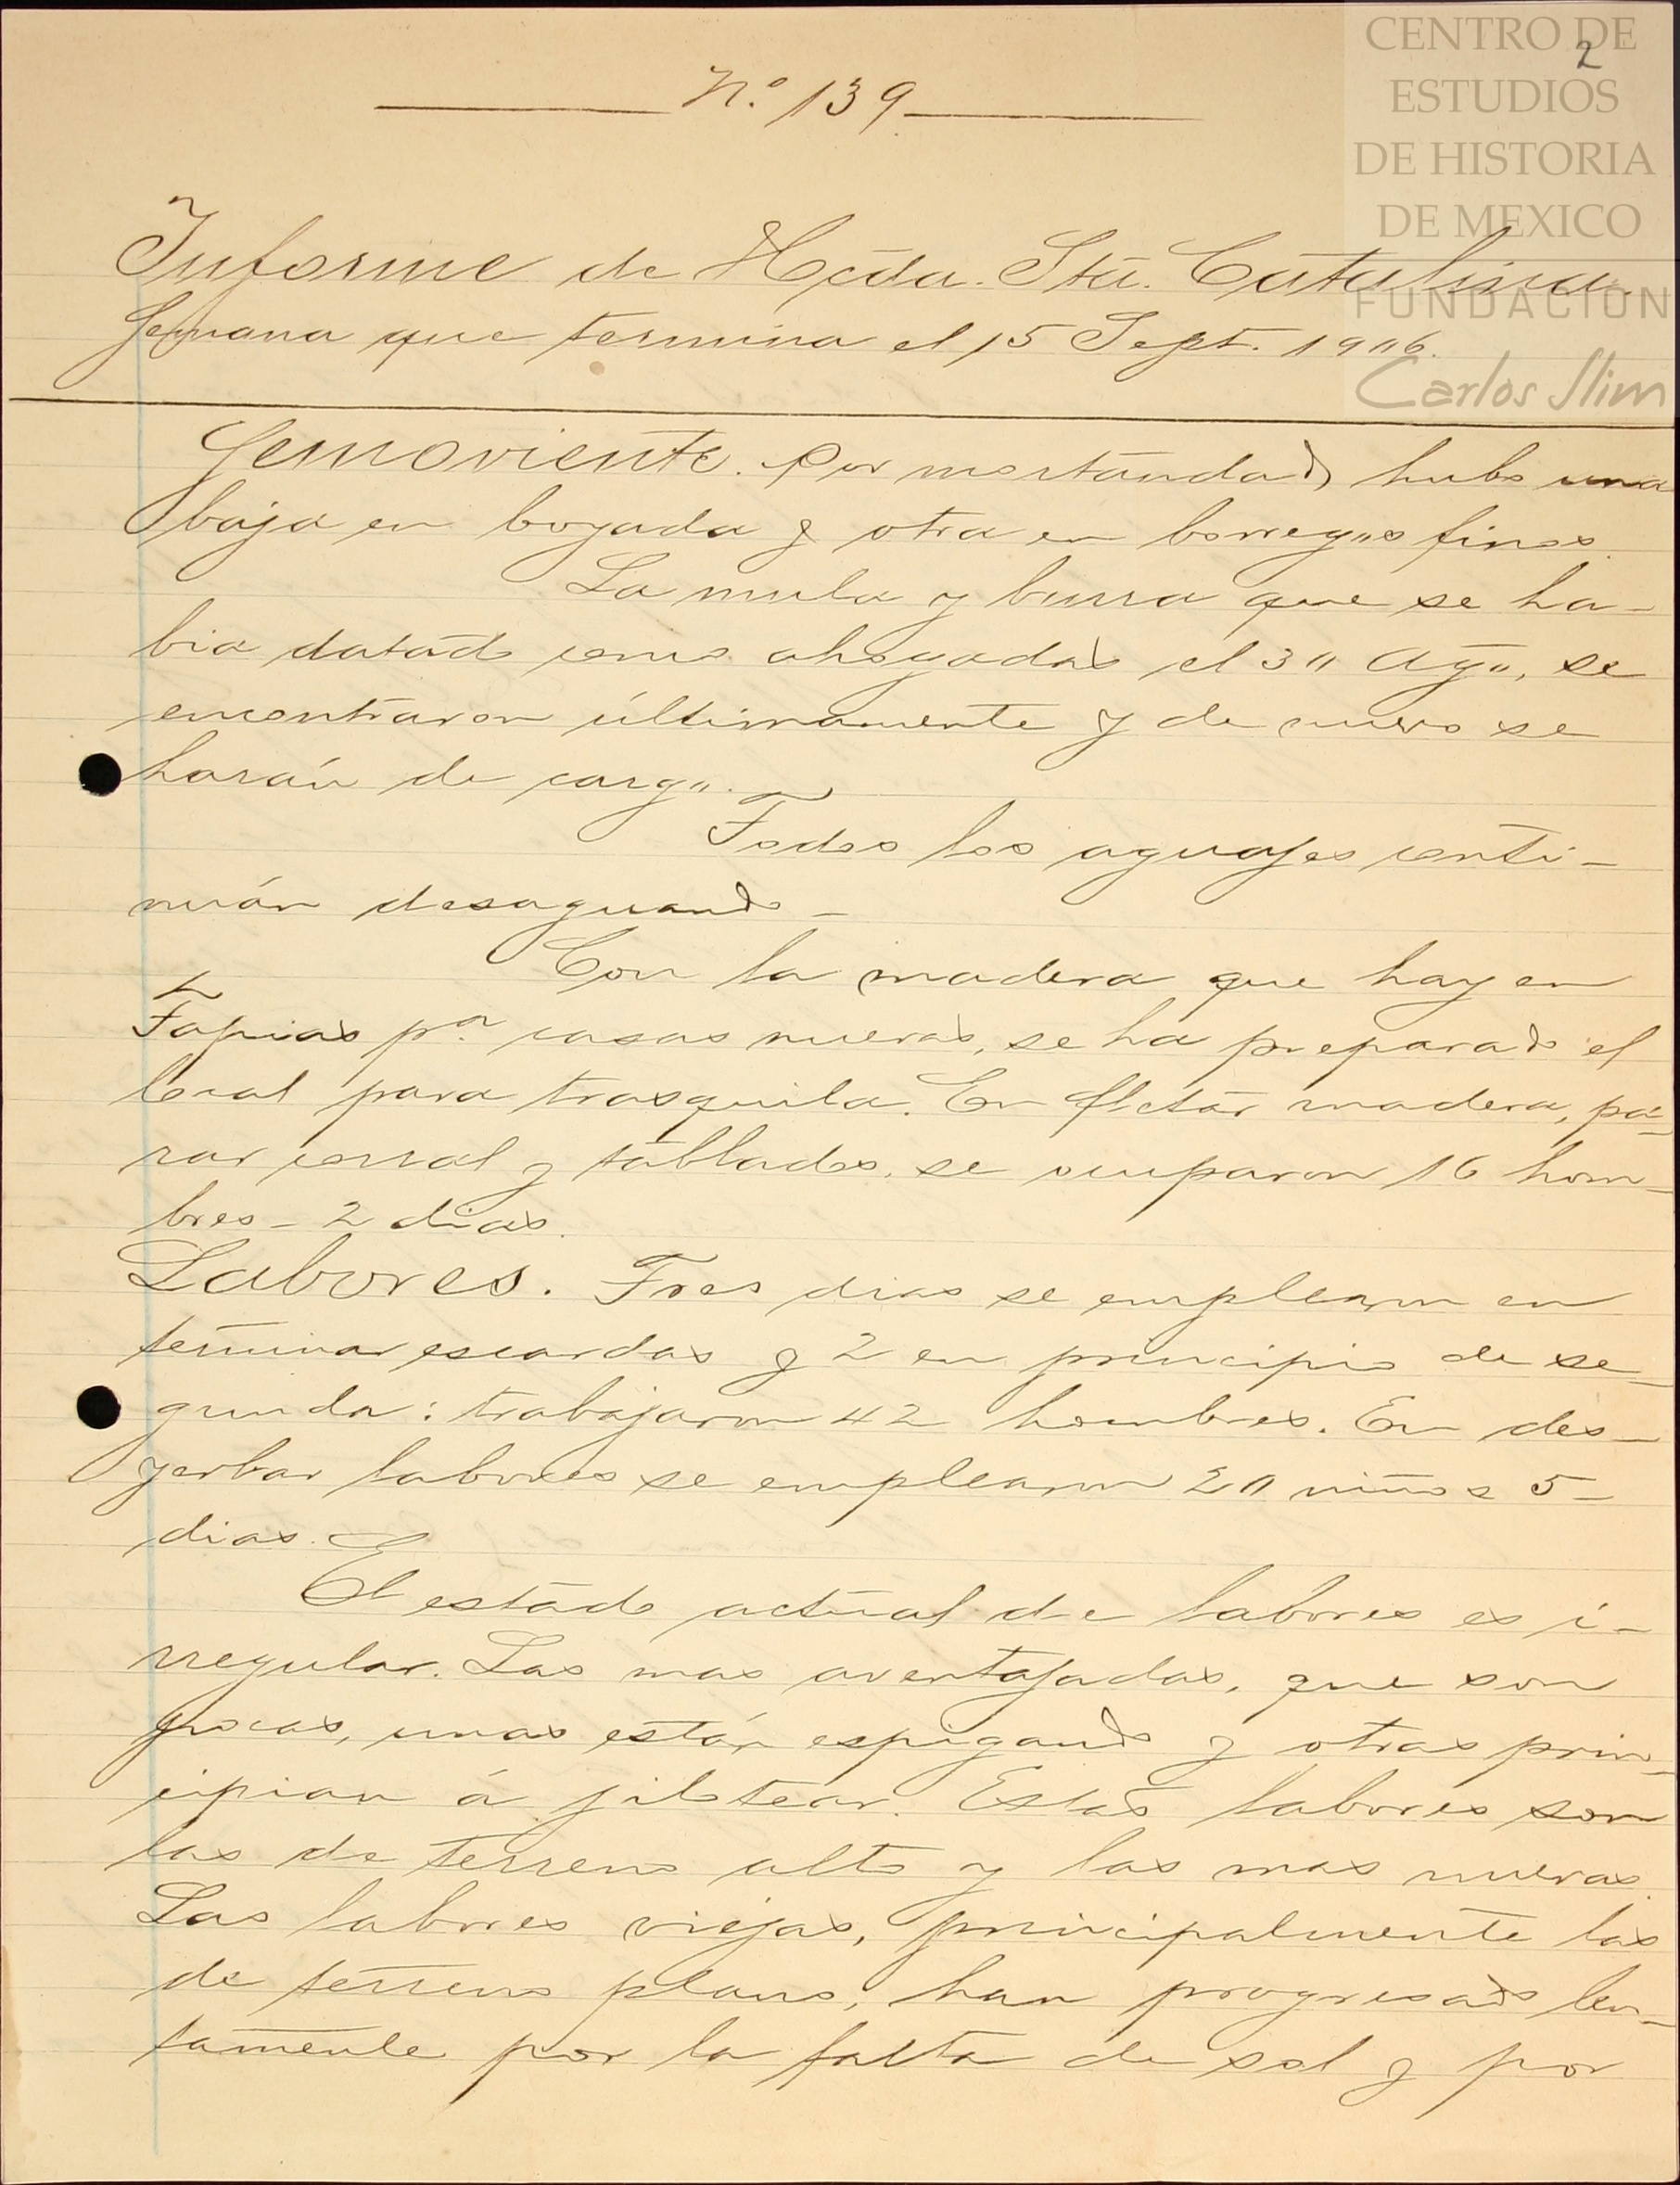 CENTRO DE
ESTUDIOS
DE HISTORIA
DE MEXICO
FUNDACION
Carlos Slim
2
N.º 139
Informe de Hcda. Sta. Catalina.
Semana que termina el 15 Sept. 1906.
Semoviente. Por mortandad, hubo una
baja en boyada y otra en borregos finos.
La mula y burra que se ha-
bia datado como ahogadas el 30 Ago, se
encontraron últimamente y de nuevo se
harán de cargo.
Todos los aguajes conti-
nuán desaguando -
Con la madera que hay en
Tapias pª casas nuevas, se ha preparado el
local para trasquila. En fletar madera, pa-
rar corral y tablados, se ocuparon 16 hom-
bres - 2 dias.
Labores. Tres dias se emplearon en
terminar escardas y 2 en principio de se-
gunda: trabajaron 42 hombres. En des-
yerbar labores se emplearon 20 niños 5-
dias.
El estado actual de labores es i-
rregular. Las mas aventajadas, que son
pocas, unas están espigando y otras prin-
cipian á jilotear. Estas labores son
las de terreno alto y las mas nuevas.
Las labores viejas, principalmente las
de terreno plano, han progresado len-
tamente por la falta de sol y por